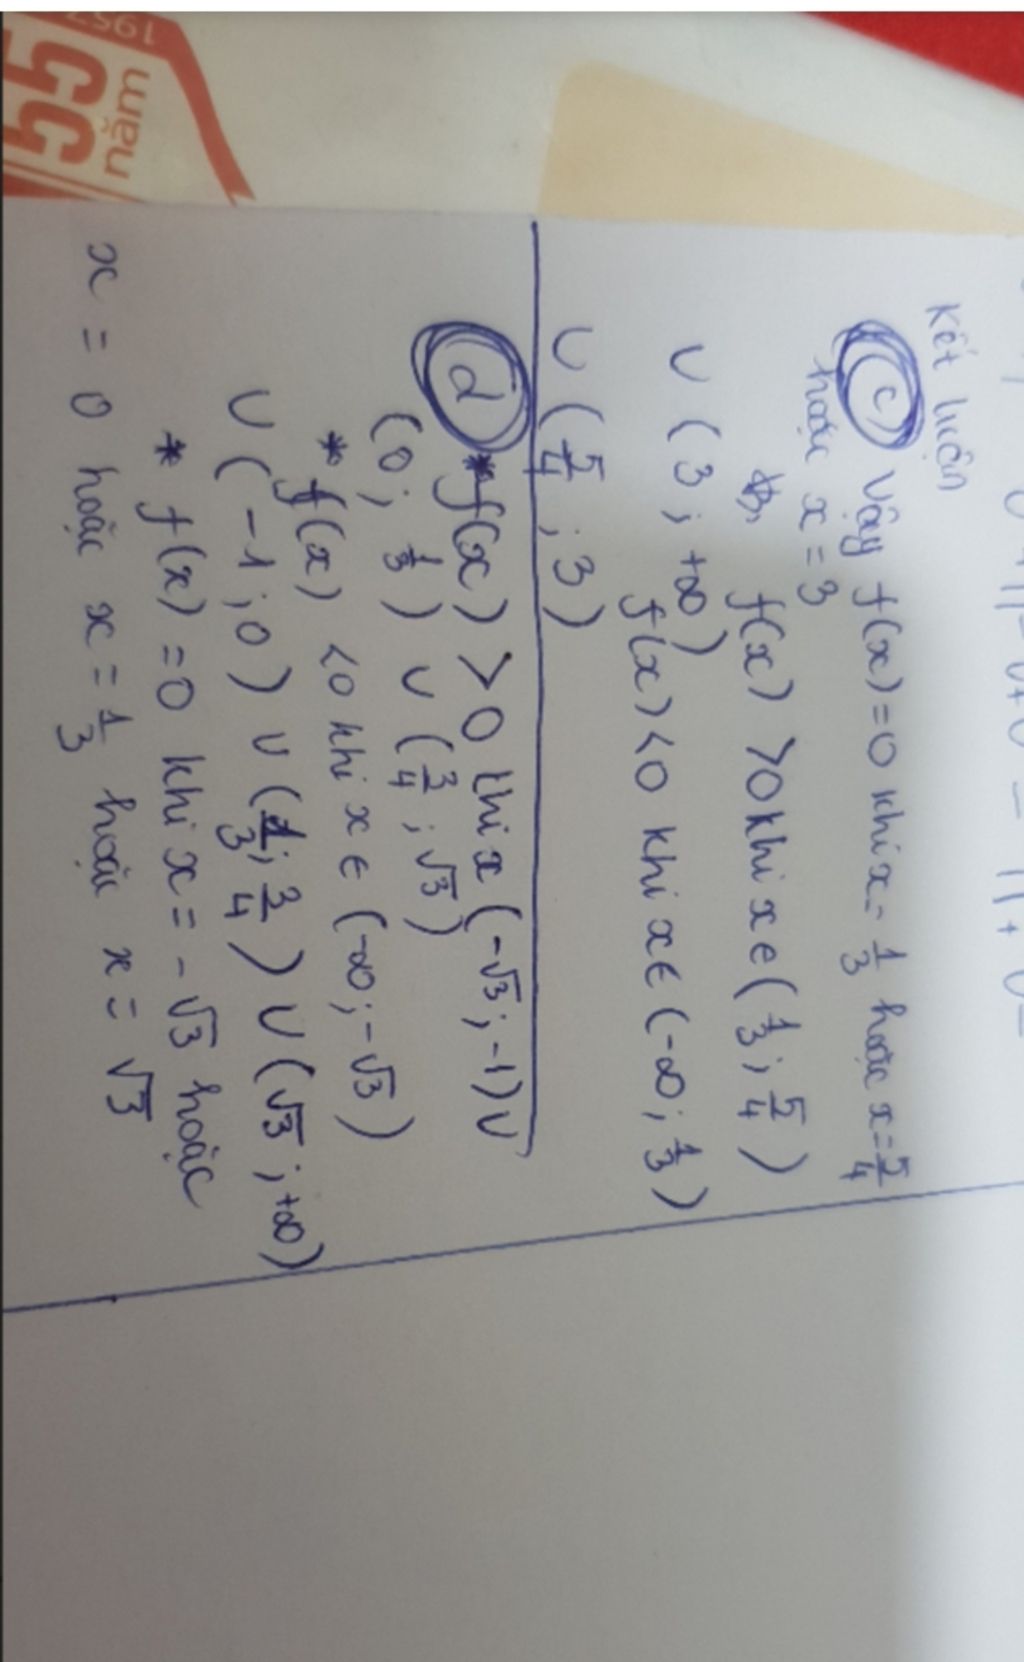 1957
55
năm
Kết luận
c) Vậy f(x) = 0 khi x = 1/3 hoặc x = 5/4
hoặc x = 3
f(x) > 0 khi x ∈ (1/3 ; 5/4)
∪ (3 ; +∞)
f(x) < 0 khi x ∈ (-∞ ; 1/3)
∪ (5/4 ; 3)
d) * f(x) > 0 khi x (-√3 ; -1) ∪
(0 ; 1/3) ∪ (3/4 ; √3)
* f(x) < 0 khi x ∈ (-∞ ; -√3)
∪ (-1 ; 0) ∪ (1/3 ; 3/4) ∪ (√3 ; +∞)
* f(x) = 0 khi x = -√3 hoặc
x = 0 hoặc x = 1/3 hoặc x = √3